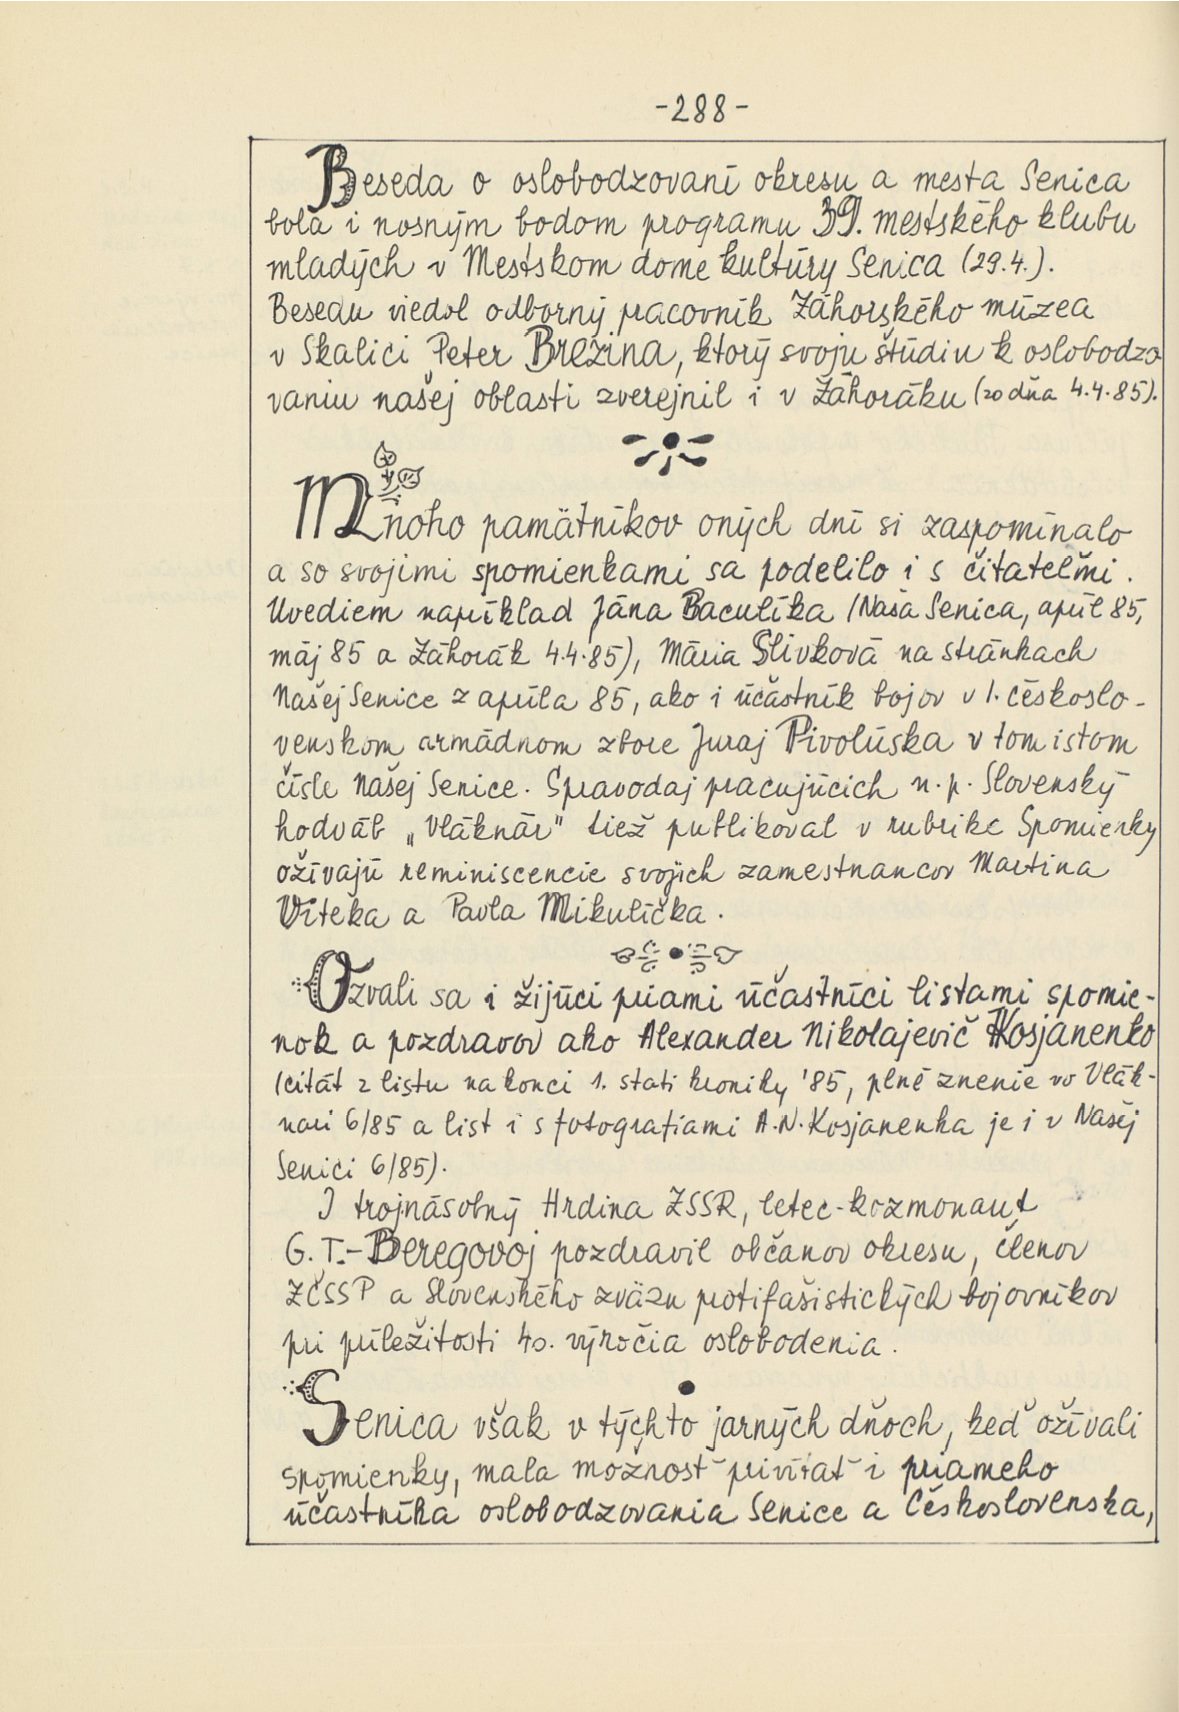 -288-
Beseda o oslobodzovaní okresu a mesta Senica
bola i nosným bodom programu 39. mestského klubu
mladých v Mestskom dome kultúry Senica (29.4.).
Besedu viedol odborný pracovník Záhorského múzea
v Skalici Peter Brezina, ktorý svoju štúdiu k oslobodzo
vaniu našej oblasti zverejnil i v Záhoráku (zo dňa 4.4.85).
Mnoho pamätníkov oných dní si zaspomínalo
a so svojimi spomienkami sa podelilo i s čitateľmi.
Uvediem napríklad Jána Baculíka (Naša Senica, apríl 85,
máj 85 a Záhorák 4.4.85), Mária Slivková na stránkach
Našej Senice z apríla 85, ako i účastník bojov v 1. českoslo-
venskom armádnom zbore Juraj Pivolúska v tom istom
čísle Našej Senice. Spravodaj pracujúcich n.p. Slovenský
hodváb „Vláknár" tiež publikoval v rubrike Spomienky
ožívajú reminiscencie svojich zamestnancov Martina
Víteka a Pavla Mikulíčka.
Ozvali sa i žijúci priami účastníci listami spomie-
nok a pozdravov ako Alexander Nikolajevič Kosjanenko
(citát z listu na konci 1. stati kroniky '85, plné znenie vo Vlák-
nari 6/85 a list i s fotografiami A.N. Kosjanenka je i v Našej
Senici 6/85).
I trojnásobný Hrdina ZSSR, letec-kozmonaut
G.T.-Beregovoj pozdravil občanov okresu, členov
ZČSSP a Slovenského zväzu protifašistických bojovníkov
pri príležitosti 40. výročia oslobodenia.
Senica však v týchto jarných dňoch, keď ožívali
spomienky, mala možnosť privítať i priameho
účastníka oslobodzovania Senice a Československa,